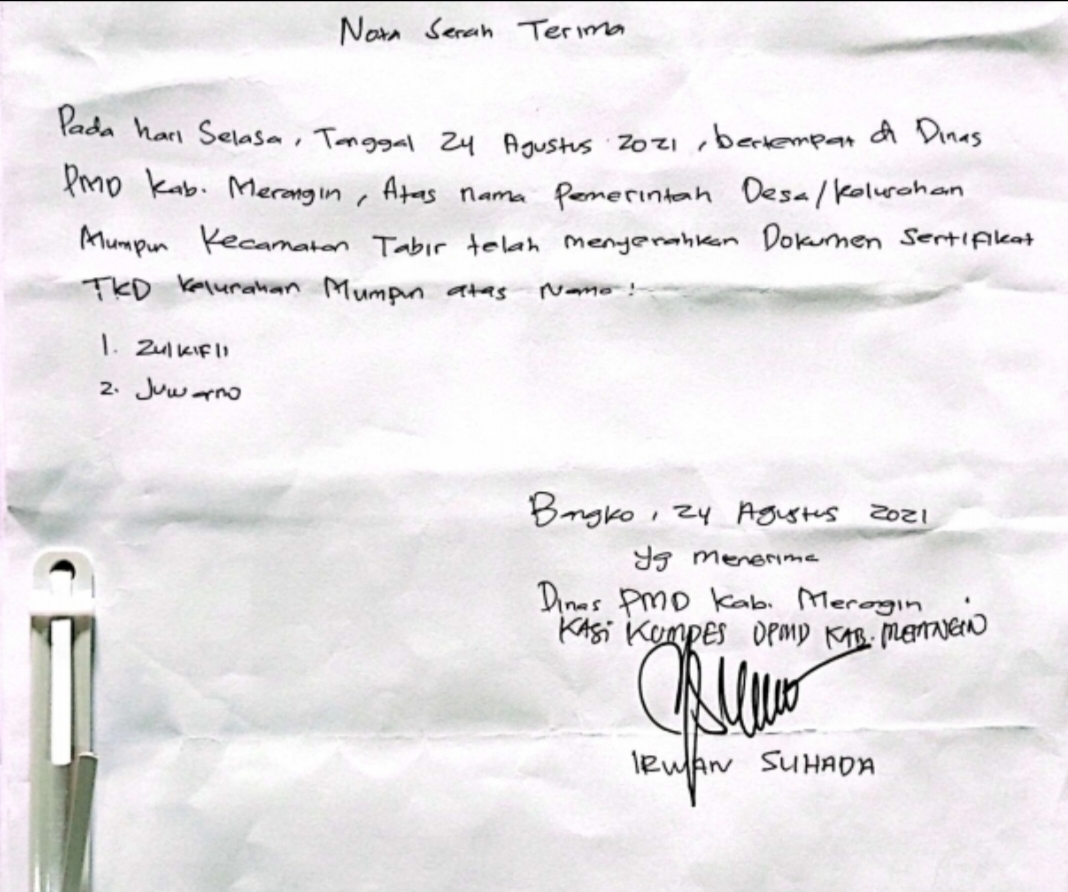 Nota Serah Terima
Pada hari Selasa, Tanggal 24 Agustus 2021, bertempat di Dinas
PMD Kab. Merangin, Atas nama Pemerintah Desa/Kelurahan
Mumpun Kecamatan Tabir telah menyerahkan Dokumen Sertifikat
TKD Kelurahan Mumpun atas Nama :
1. Zulkifli
2. Juwarno
Bangko, 24 Agustus 2021
Yg menerima
Dinas PMD Kab. Merangin
KASi KUMPES DPMD KAB. MERANGIN
IRWAN SUHADA